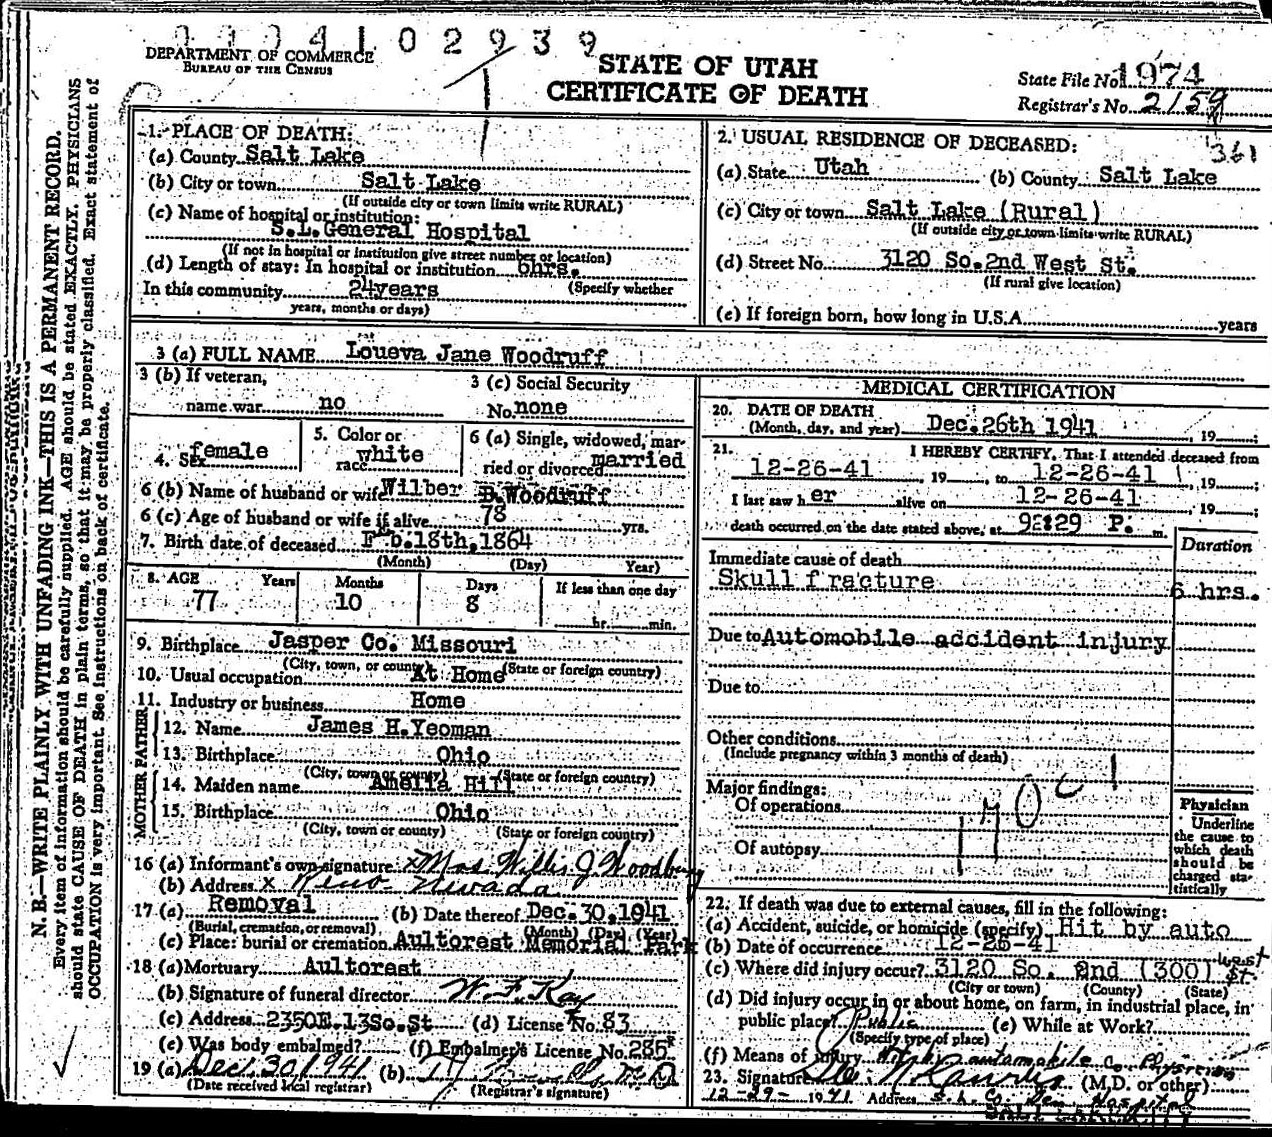 0004102939
DEPARTMENT OF COMMERCE
BUREAU OF THE CENSUS
STATE OF UTAH
CERTIFICATE OF DEATH
State File No. 1974
Registrar's No. 2159
361
N. B.—WRITE PLAINLY WITH UNFADING INK—THIS IS A PERMANENT RECORD.
Every item of information should be carefully supplied. AGE should be stated EXACTLY. PHYSICIANS
should state CAUSE OF DEATH in plain terms, so that it may be properly classified. Exact statement of
OCCUPATION is very important. See instructions on back of certificate.
1. PLACE OF DEATH:
(a) County Salt Lake
(b) City or town Salt Lake
(If outside city or town limits write RURAL)
(c) Name of hospital or institution:
S.L.General Hospital
(If not in hospital or institution give street number or location)
(d) Length of stay: In hospital or institution 6hrs.
In this community 24years (Specify whether
years, months or days)
2. USUAL RESIDENCE OF DECEASED:
(a) State Utah (b) County Salt Lake
(c) City or town Salt Lake (Rural)
(If outside city or town limits write RURAL)
(d) Street No. 3120 So.2nd West St.
(If rural give location)
(e) If foreign born, how long in U.S.A. years
3 (a) FULL NAME Loueva Jane Woodruff
3 (b) If veteran, name war no
3 (c) Social Security No. none
4. Sex female
5. Color or race white
6 (a) Single, widowed, married or divorced married
6 (b) Name of husband or wife Wilber B.Woodruff
6 (c) Age of husband or wife if alive 78 yrs.
7. Birth date of deceased Feb.18th,1864
(Month) (Day) Year)
8. AGE Years Months Days If less than one day
77 10 8 hr. min.
9. Birthplace Jasper Co. Missouri
(City, town, or county) (State or foreign country)
10. Usual occupation At Home
11. Industry or business Home
FATHER
12. Name James H.Yeoman
13. Birthplace Ohio
(City, town or county) (State or foreign country)
MOTHER
14. Maiden name Amelia Hill
15. Birthplace Ohio
(City, town or county) (State or foreign country)
16 (a) Informant's own signature x Mrs. Willis J. Woodbury
(b) Address x Reno Nevada
17 (a) Removal (b) Date thereof Dec.30,1941
(Burial, cremation, or removal) (Month) (Day) (Year)
(c) Place: burial or cremation Aultorest Memorial Park
18 (a) Mortuary Aultorest
(b) Signature of funeral director W. F. Kay
(c) Address 2350E.13So.St (d) License No. 83
(e) Was body embalmed? (f) Embalmer's License No. 285
19 (a) Dec. 30, 1941 (b)
(Date received local registrar) (Registrar's signature)
MEDICAL CERTIFICATION
20. DATE OF DEATH
(Month, day, and year) Dec.26th 1941, 19 ;
21. I HEREBY CERTIFY, That I attended deceased from
12-26-41, 19 , to 12-26-41, 19 ;
I last saw her alive on 12-26-41, 19 ;
death occurred on the date stated above, at P. m.
Duration
Immediate cause of death
Skull fracture 6 hrs.
Due to Automobile accident injury
Due to
Other conditions
(Include pregnancy within 3 months of death)
Major findings:
Of operations
Of autopsy
Physician
Underline
the cause to
which death
should be
charged sta-
tistically
22. If death was due to external causes, fill in the following:
(a) Accident, suicide, or homicide (specify) Hit by auto
(b) Date of occurrence 12-26-41
(c) Where did injury occur? 3120 So. 2nd (300) West St.
(City or town) (County) (State)
(d) Did injury occur in or about home, on farm, in industrial place, in
public place? Public (e) While at Work?
(Specify type of place)
(f) Means of injury Hit by automobile Co. Physician
23. Signature (M.D. or other)
12-29-1941 Address S. L. Co. Gen Hospital